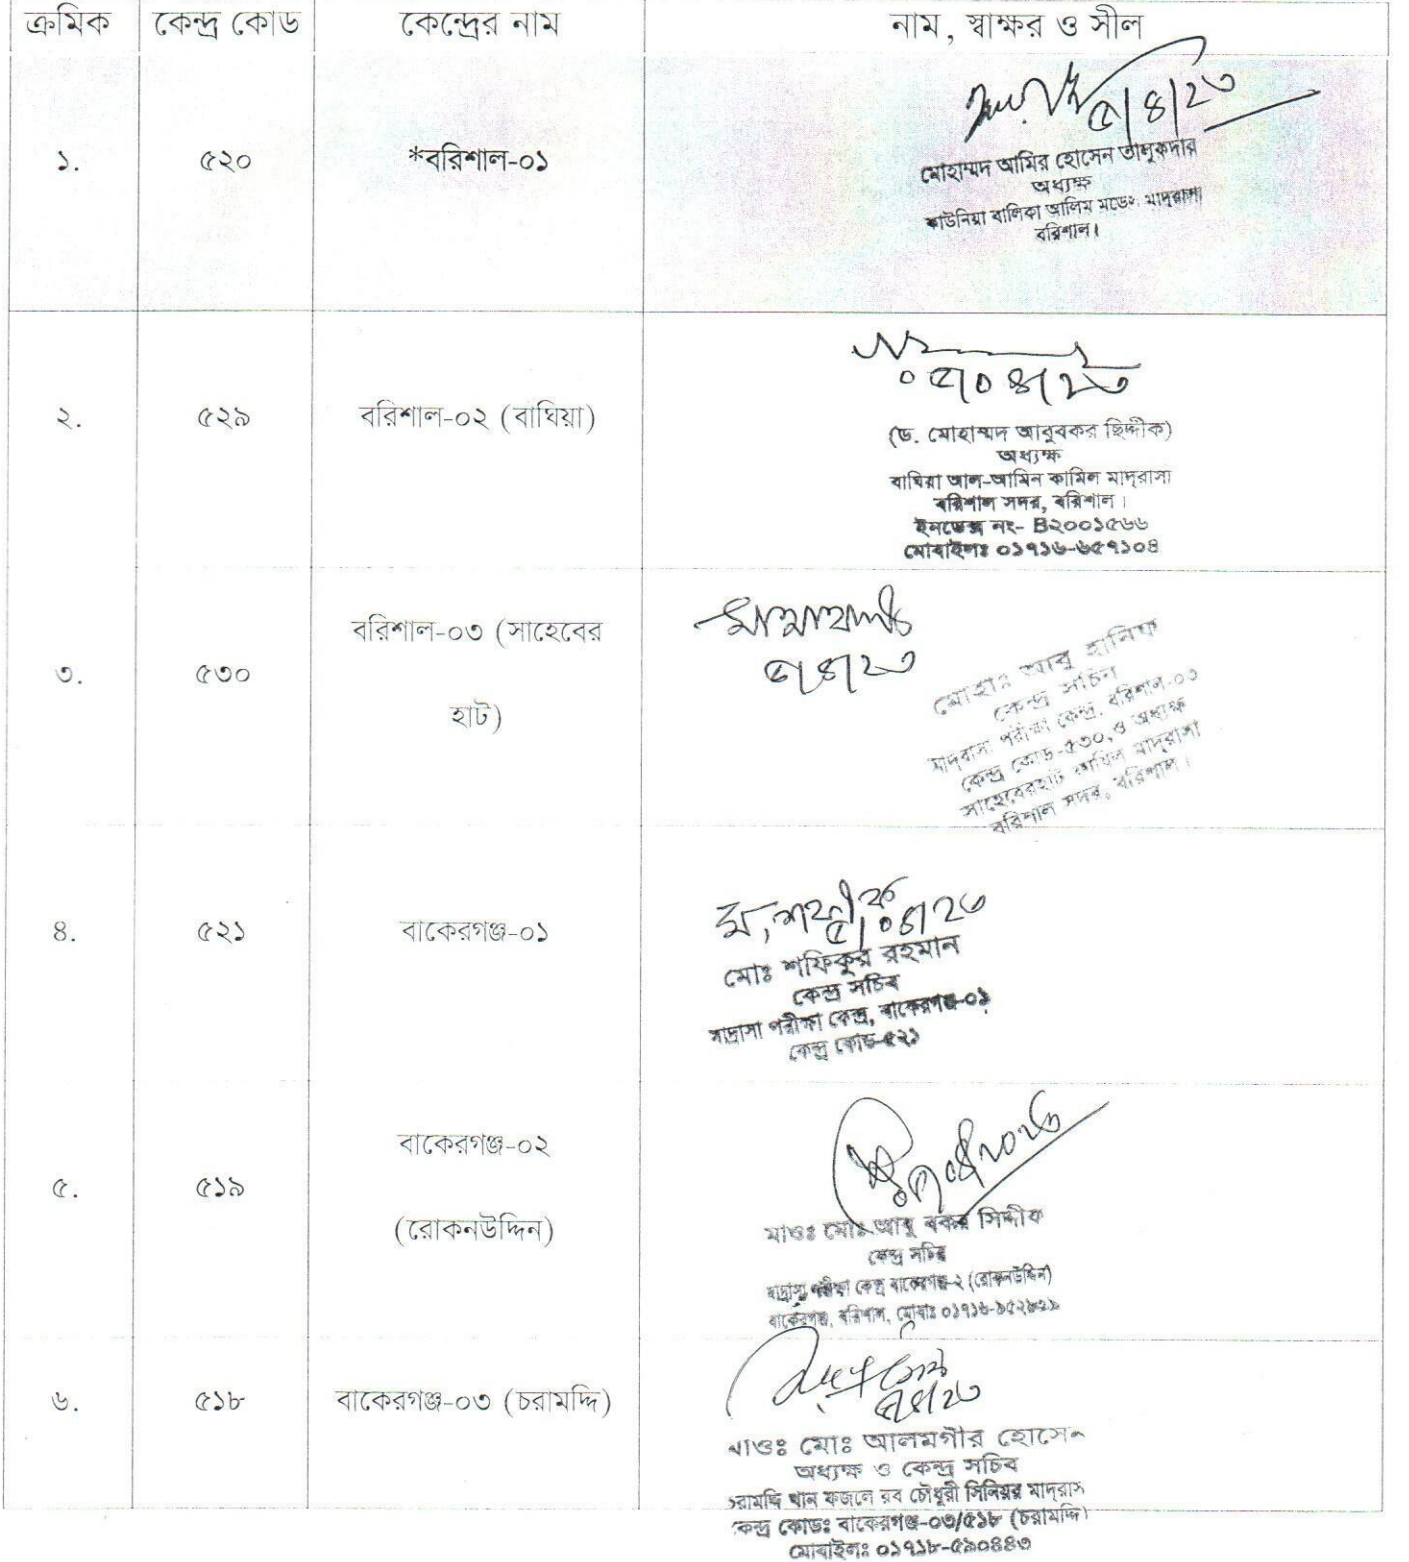 ক্রমিক কেন্দ্র কোড কেন্দ্রের নাম নাম, স্বাক্ষর ও সীল
৫/৪/২৩
১. ৫২০ *বরিশাল-০১
মোহাম্মদ আমির হোসেন তালুকদার
অধ্যক্ষ
কাউনিয়া বালিকা আলিম মডেঃ মাদ্রাসা
বরিশাল।
০৫/০৪/২৩
২. ৫২৯ বরিশাল-০২ (বাঘিয়া)
(ড. মোহাম্মদ আবুবকর ছিদ্দীক)
অধ্যক্ষ
বাঘিয়া আল-আমিন কামিল মাদ্রাসা
বরিশাল সদর, বরিশাল।
ইনডেক্স নং- B২০০১৫৬৬
মোবাইলঃ ০১৭১৬-৬৫৭১০৪
৩. ৫৩০ বরিশাল-০৩ (সাহেবের
হাট)
৫/৪/২৩
মোহাঃ আবু হানিফ
কেন্দ্র সচিন
মাদ্রাসা পরীক্ষা কেন্দ্র, বরিশাল-০৩
কেন্দ্র কোড-৫৩০,ও অধ্যক্ষ
সাহেবেরহাট মাদ্রাসা
বরিশাল সদর, বরিশাল।
৪. ৫২১ বাকেরগঞ্জ-০১
৫/০৪/২৩
মোঃ শফিকুর রহমান
কেন্দ্র সচিব
মাদ্রাসা পরীক্ষা কেন্দ্র, বাকেরগঞ্জ-০১
কেন্দ্র কোড-৫২১
৫. ৫১৯ বাকেরগঞ্জ-০২
(রোকনউদ্দিন)
মাওঃ মোঃ আবু বকর সিদ্দীক
কেন্দ্র সচিব
মাদ্রাসা পরীক্ষা কেন্দ্র বাকেরগঞ্জ-২ (রোকনউদ্দিন)
বাকেরগঞ্জ, বরিশাল, মোবাঃ
৬. ৫১৮ বাকেরগঞ্জ-০৩ (চরামদ্দি)
৫/৪/২৩
মাওঃ মোঃ আলমগীর হোসেন
অধ্যক্ষ ও কেন্দ্র সচিব
চরামদ্দি খান ফজলে রব চৌধুরী সিনিয়র মাদ্রাস
কেন্দ্র কোডঃ বাকেরগঞ্জ-০৩/৫১৮ (চরামদ্দি)
মোবাইলঃ ০১৭১৮-৫৯০৪৪৩